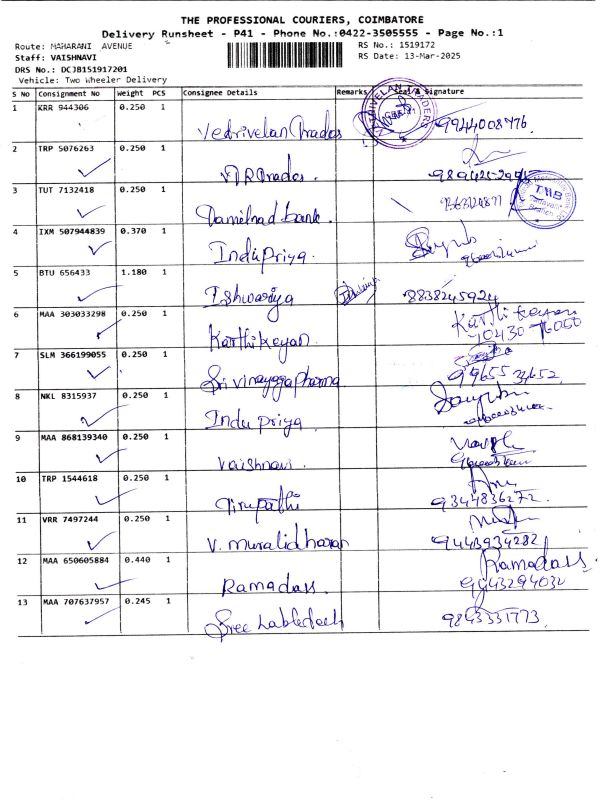 THE PROFESSIONAL COURIERS, COIMBATORE
Delivery Runsheet - P41 - Phone No.:0422-3505555 - Page No.:1
Route: MAHARANI AVENUE RS No.: 1519172
Staff: VAISHNAVI RS Date: 13-Mar-2025
DRS No.: DCJB151917201
Vehicle: Two Wheeler Delivery
S No Consignment No Weight PCS Consignee Details Remarks Seal & Signature
1 KRR 944306 0.250 1
Vedrivelan Trades 9944008776.
2 TRP 5076263 0.250 1
VTR Trades.
3 TUT 7132418 0.250 1
Tamilnad bank. TMB
4 IXM 507944839 0.370 1
Indu Priya.
5 BTU 656433 1.180 1
Ishwariya 8838245924
6 MAA 303033298 0.250 1
Karthikeyan Karthikeyan
7 SLM 366199055 0.250 1
Sri vinayaga pharma
8 NKL 8315937 0.250 1
Indu priya.
9 MAA 868139340 0.250 1
Vaishnavi.
10 TRP 1544618 0.250 1
Tirupathi 9344836272.
11 VRR 7497244 0.250 1
V. muralidharan 9443934282
12 MAA 650605884 0.440 1
Ramadass. Ramadass
9443294032
13 MAA 707637957 0.245 1
Sree 9843331773